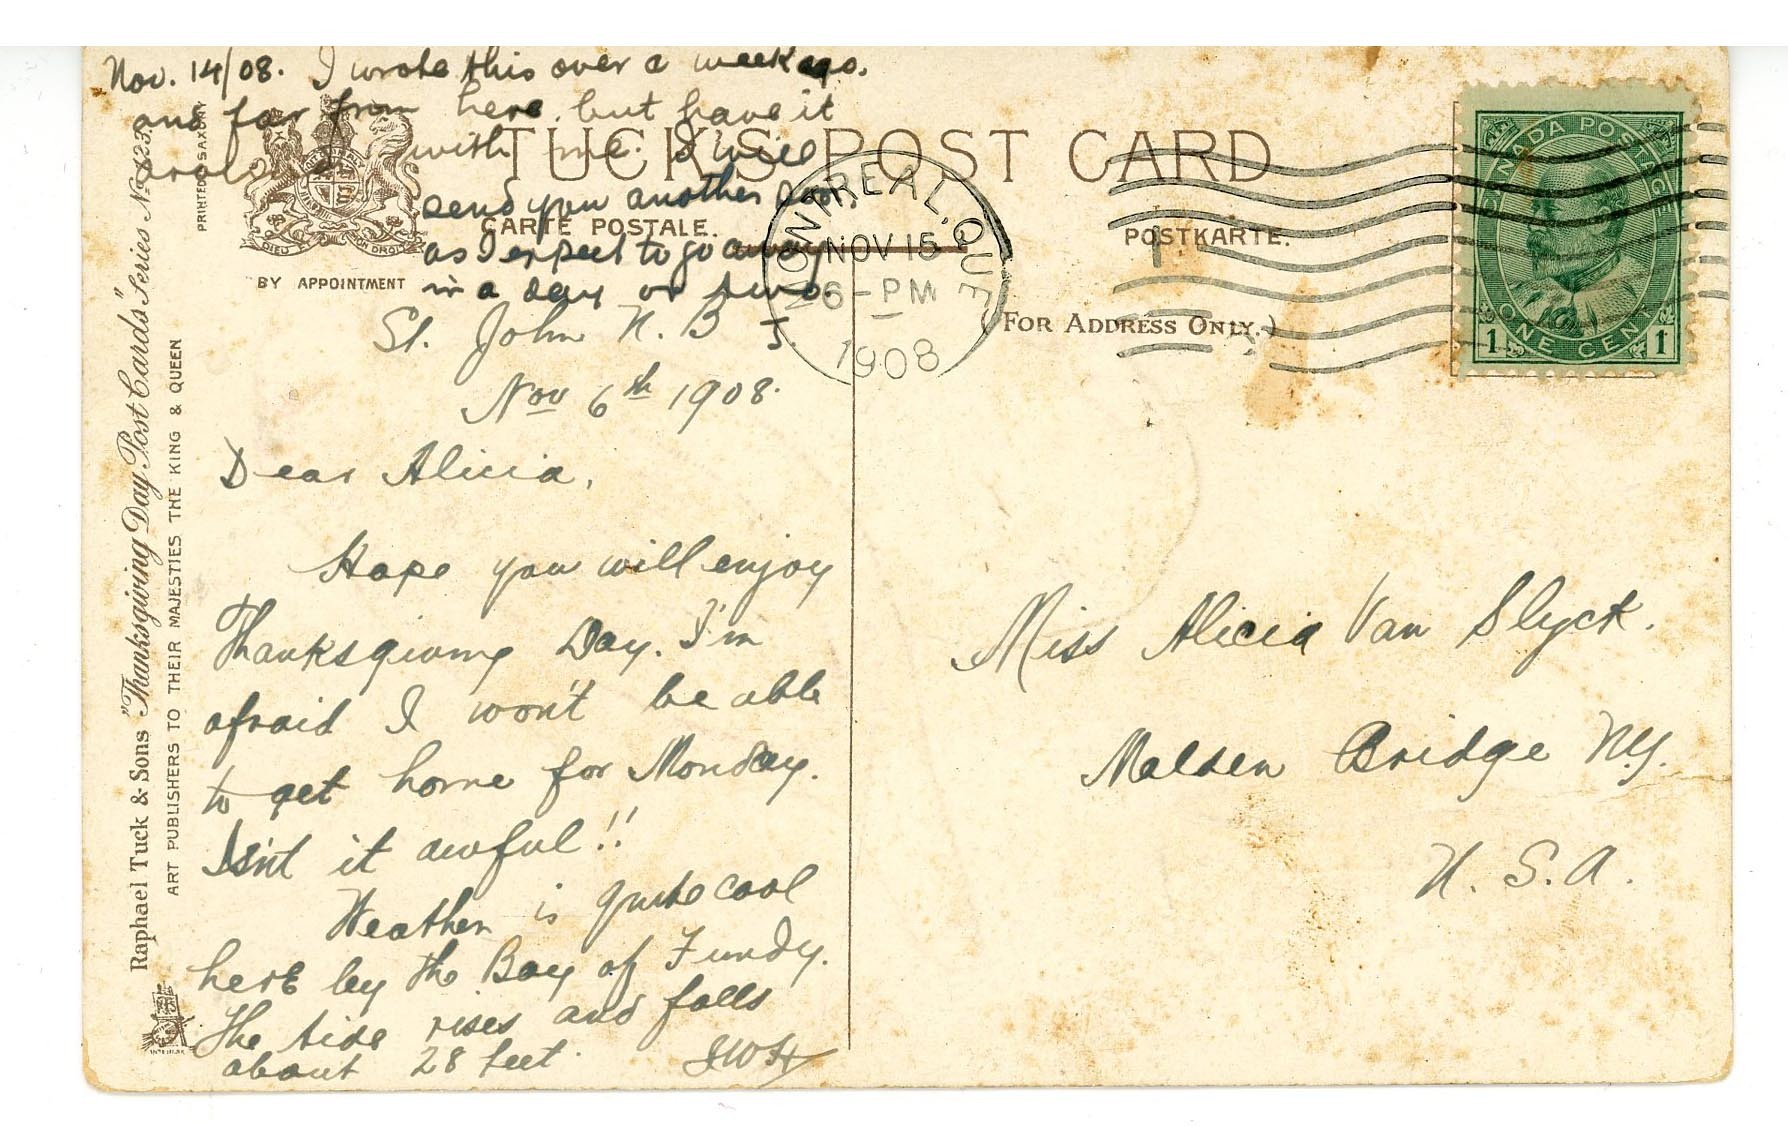 Nov. 14/08. I wrote this over a week ago.
and far from here, but have it
with me. I will
send you another soon.
as I expect to go away
in a day or two.
TUCK'S POST CARD
CARTE POSTALE.
POSTKARTE.
BY APPOINTMENT
(FOR ADDRESS ONLY.)
DIEU ON DROIT
MONTREAL, QUE
NOV 15
6-PM
1908
CANADA POSTAGE
ONE CENT
1 1
St. John N. B
Nov 6th 1908.
Dear Alicia,
Hope you will enjoy
Thanksgiving Day. I'm
afraid I won't be able
to get home for Monday.
Isn't it awful!!
Weather is quite cool
here by the Bay of Fundy.
The tide rises and falls
about 28 feet.
Miss Alicia Van Slyck.
Malden Bridge N.Y.
U. S. A.
Raphael Tuck & Sons "Thanksgiving Day Post Cards" Series No. 123.
ART PUBLISHERS TO THEIR MAJESTIES THE KING & QUEEN
PRINTED SAXONY